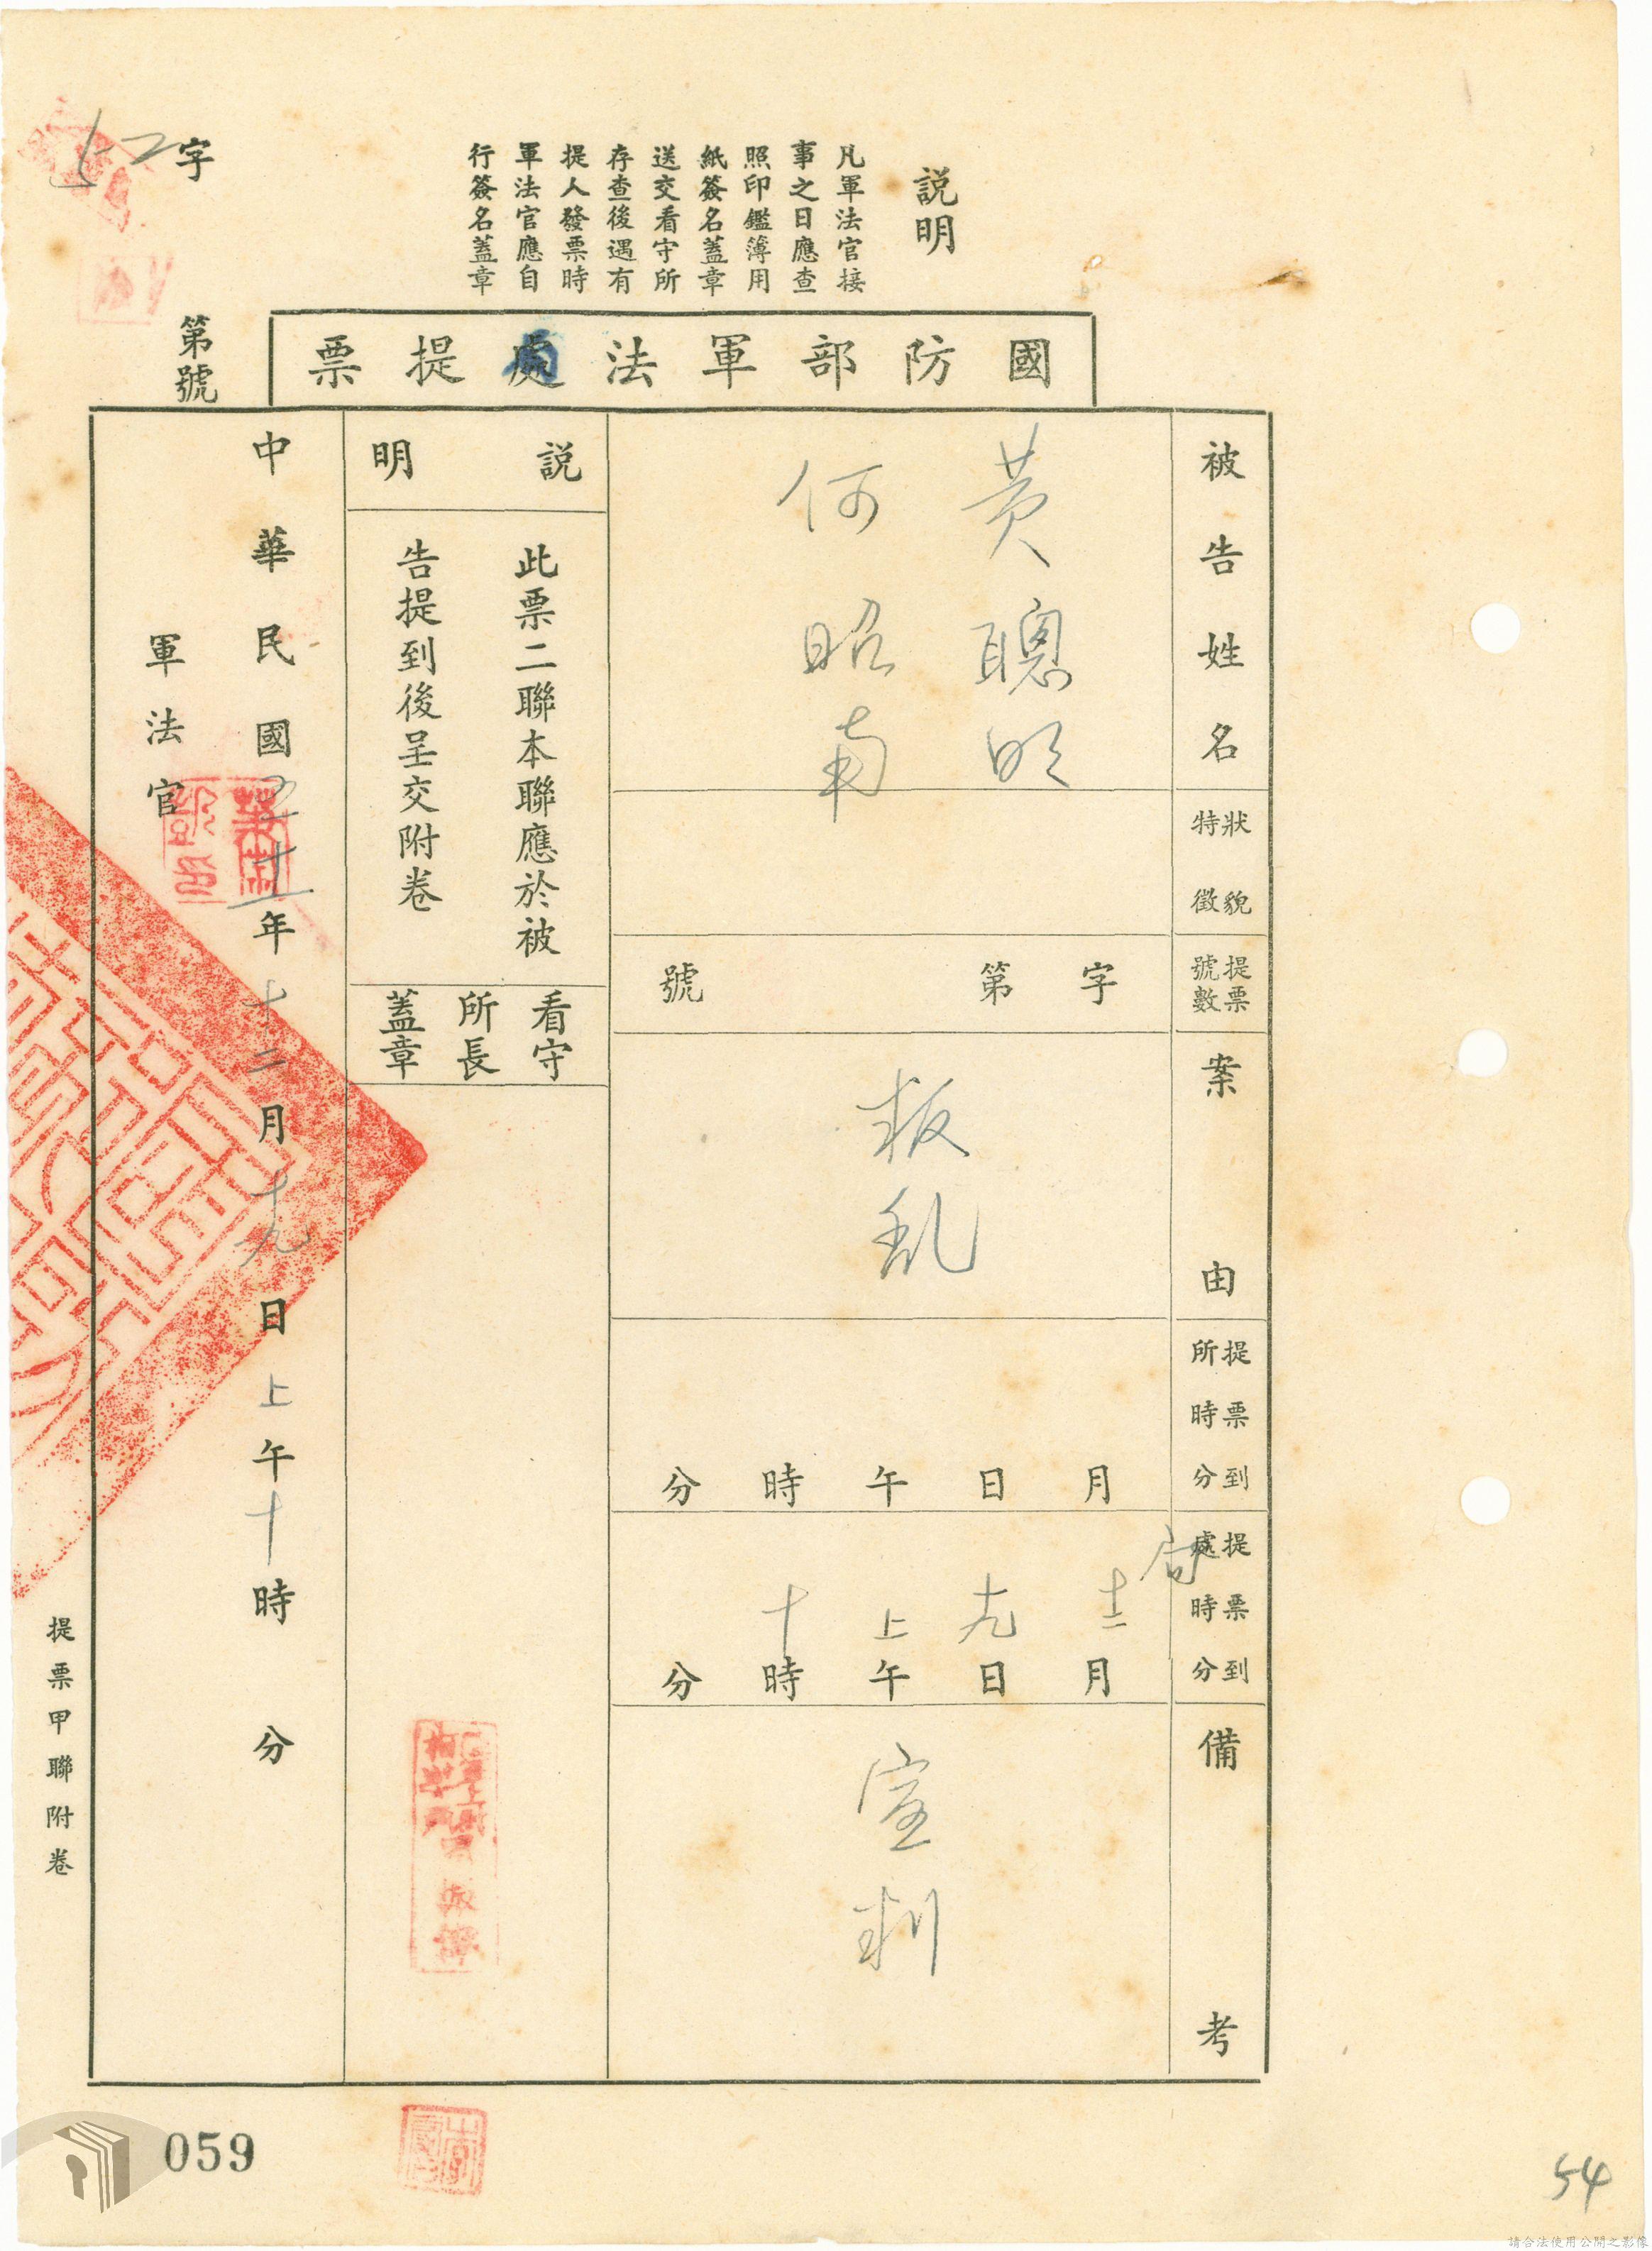 説明
凡軍法官接
事之日應查
照印鑑簿用
紙簽名蓋章
送交看守所
存查後遇有
提人發票時
軍法官應自
行簽名蓋章
字
52
第號
國防部軍法局提票
被告姓名
黃聰明
何昭南
狀貌
特徵
提票
號數
字第號
案由
叛乱
提票到
所時分
月日午時分
提票到
處時分
局
十二月十九日上午十時分
備考
宣判
説明
此票二聯本聯應於被
告提到後呈交附卷
看守
所長
蓋章
中華民國五十一年十二月十九日上午十時分
軍法官
提票甲聯附卷
059
54
請合法使用公開之影像